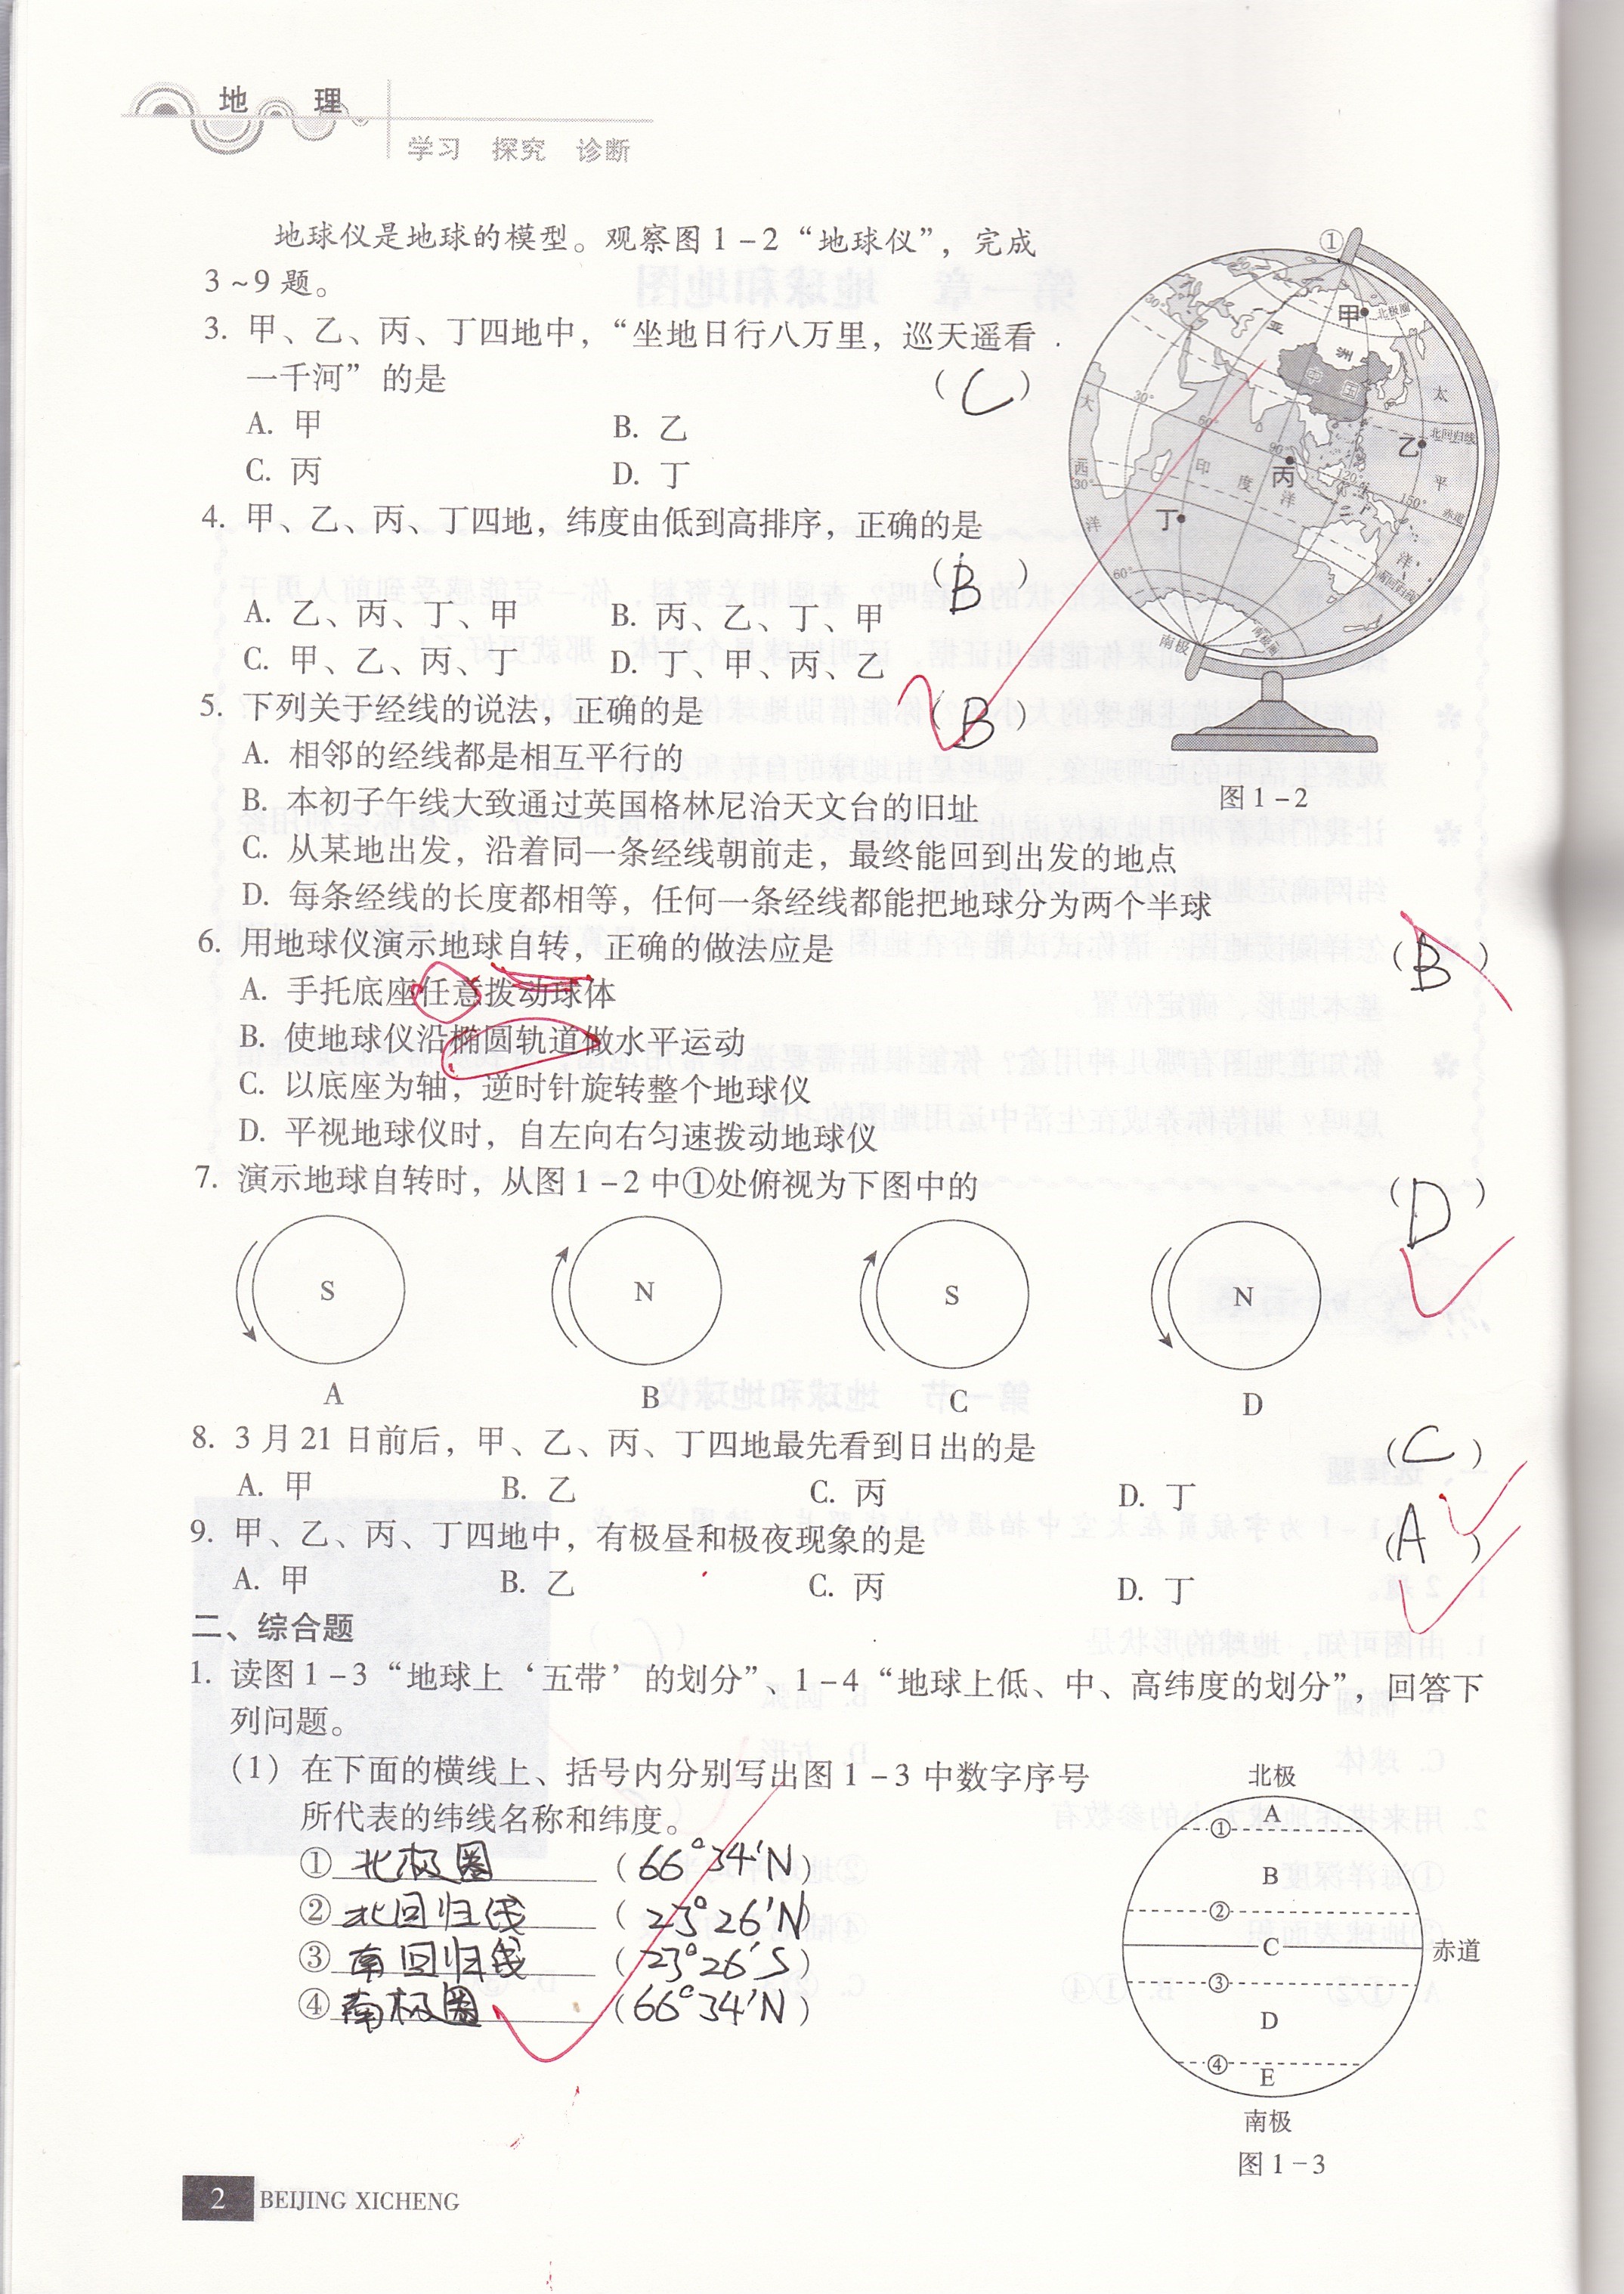 地 理
学习 探究 诊断
地球仪是地球的模型。观察图1-2“地球仪”，完成
3~9题。
3. 甲、乙、丙、丁四地中，“坐地日行八万里，巡天遥看
一千河”的是
(C)
A. 甲 B. 乙
C. 丙 D. 丁
4. 甲、乙、丙、丁四地，纬度由低到高排序，正确的是
(B)
A. 乙、丙、丁、甲 B. 丙、乙、丁、甲
C. 甲、乙、丙、丁 D. 丁、甲、丙、乙
5. 下列关于经线的说法，正确的是 (B)
A. 相邻的经线都是相互平行的
B. 本初子午线大致通过英国格林尼治天文台的旧址
C. 从某地出发，沿着同一条经线朝前走，最终能回到出发的地点
D. 每条经线的长度都相等，任何一条经线都能把地球分为两个半球
①
甲 北极圈
亚 洲
中 国
太
平
洋
乙 北回归线
大
西
洋
印 度 洋
丙
丁
赤道
南回归线
南极圈
南极
30°
30°
60°
90°
120°
150°
30°
60°
图1-2
6. 用地球仪演示地球自转，正确的做法应是 (B)
A. 手托底座任意拨动球体
B. 使地球仪沿椭圆轨道做水平运动
C. 以底座为轴，逆时针旋转整个地球仪
D. 平视地球仪时，自左向右匀速拨动地球仪
7. 演示地球自转时，从图1-2中①处俯视为下图中的 (D)
S N S N
A B C D
8. 3月21日前后，甲、乙、丙、丁四地最先看到日出的是 (C)
A. 甲 B. 乙 C. 丙 D. 丁
9. 甲、乙、丙、丁四地中，有极昼和极夜现象的是 (A)
A. 甲 B. 乙 C. 丙 D. 丁
二、综合题
1. 读图1-3“地球上‘五带’的划分”、1-4“地球上低、中、高纬度的划分”，回答下
列问题。
(1) 在下面的横线上、括号内分别写出图1-3中数字序号
所代表的纬线名称和纬度。
① 北极圈 (66°34′N)
② 北回归线 (23°26′N)
③ 南回归线 (23°26′S)
④ 南极圈 (66°34′N)
北极
A
①
B
②
C 赤道
③
D
④
E
南极
图1-3
2 BEIJING XICHENG